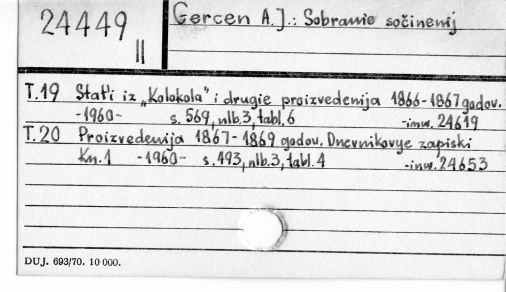 24449
II
Gercen A.J.: Sobranie sočinenij
T.19 Stat'i iz „Kolokola" i drugie proizvedenija 1866-1867 godov.
-1960- s. 569, nlb.3, tabl. 6 -inw. 24619
T.20 Proizvedenija 1867-1869 godov. Dnevnikovye zapiski
Kn.1 -1960- s. 493, nlb.3, tabl. 4 -inw. 24653
DUJ. 693/70. 10 000.